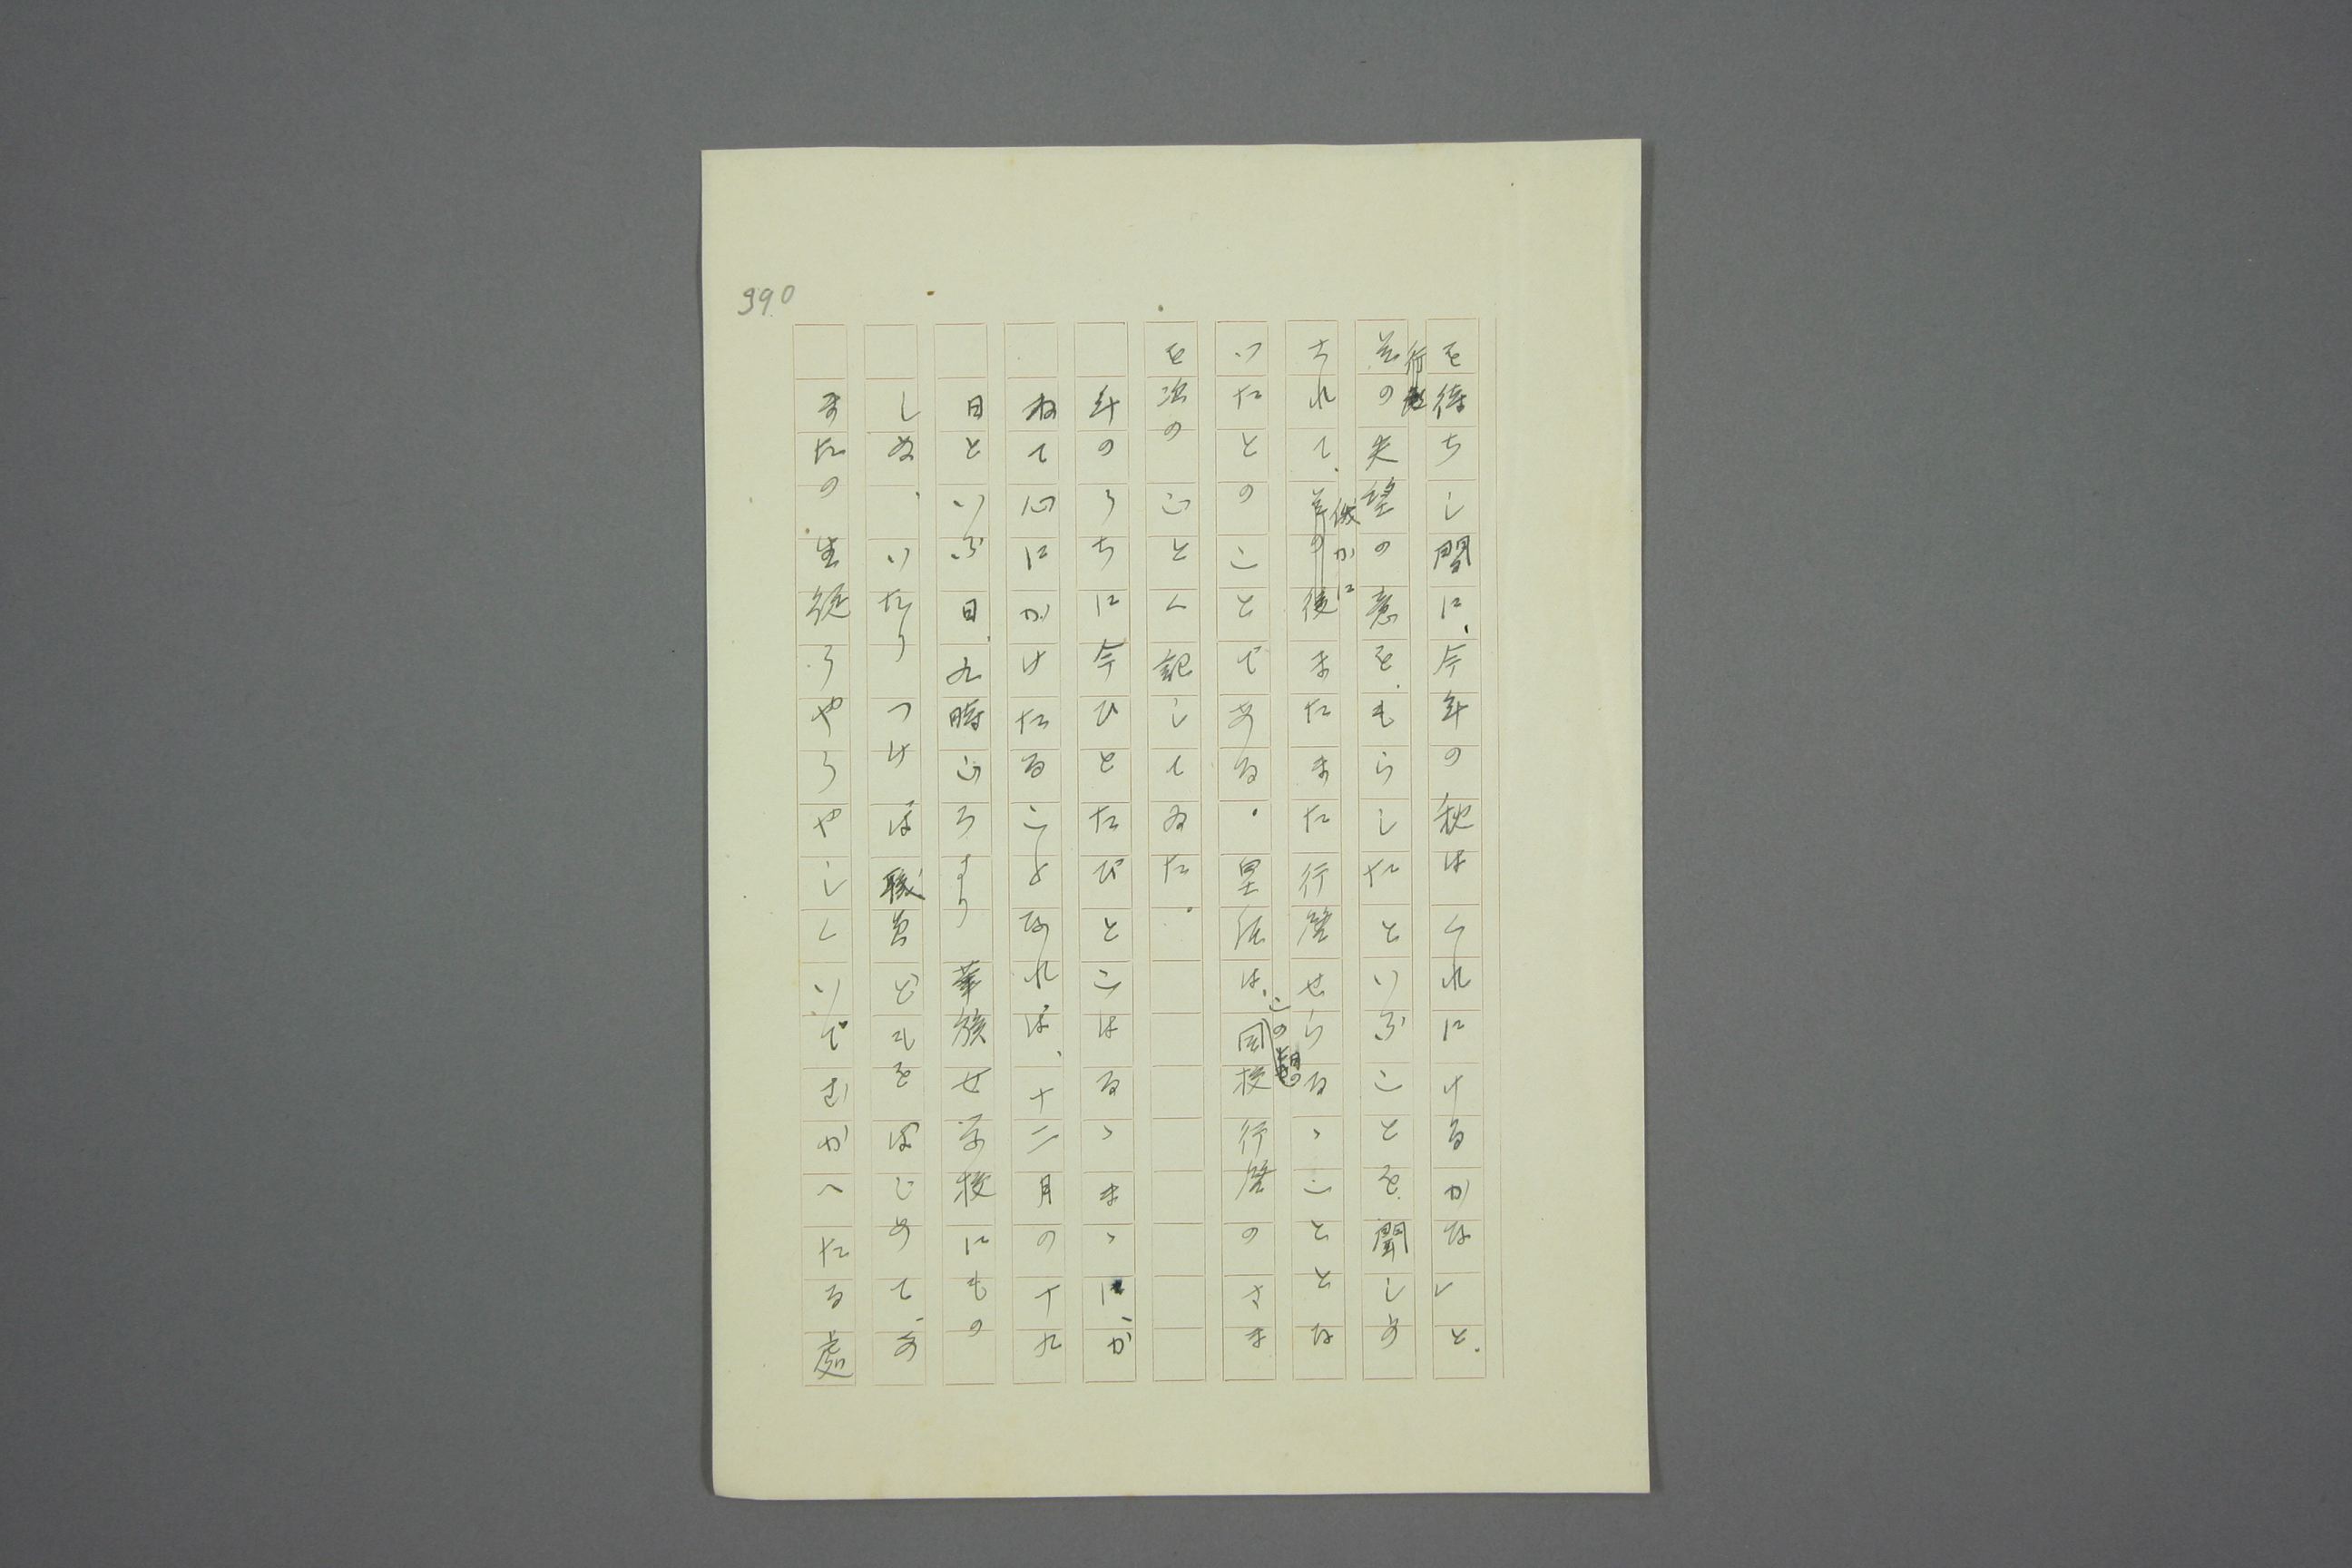 390
を待ちし間に、今年の秋はくれにけるかなしと、
其の失望の意を、もらしたといふことを、聞しめ
されて、俄かにまたまた行啓せらるゝこととな
いたとのことである。星侃は、この校行啓のさま
を次のごとく記してゐた。
年のうちに今ひとたびとこはるゝまゝに、か
ねて心にかけたることなれば、十二月の十九
日といふ日、九時ごろより華族女学校にもの
しぬ、いたりつけば職員どもをはじめて、あ
またの生徒うやうやしくいでむかへたる處